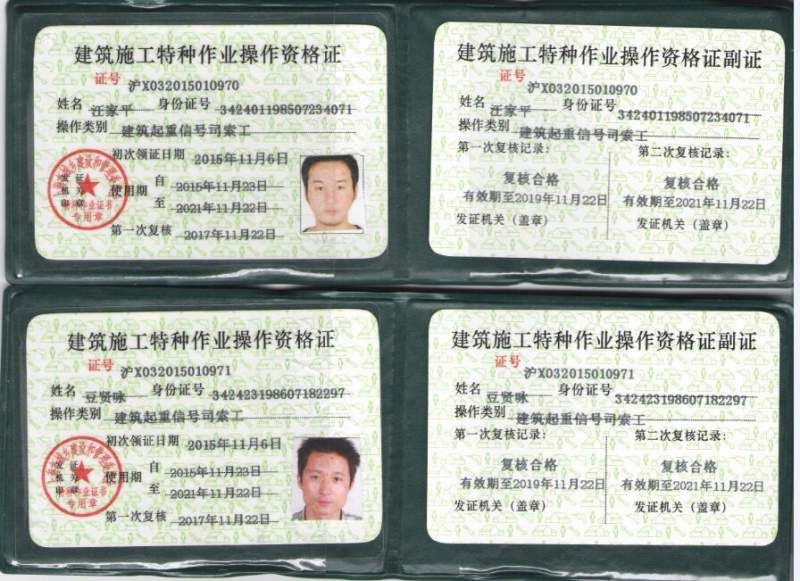 建筑施工特种作业操作资格证
证号 沪X032015010970
姓名 汪家平 身份证号 342401198507234071
操作类别 建筑起重信号司索工
初次领证日期 2015年11月6日
发证机关印章
使用期 自 2015年11月23日
至 2021年11月22日
第一次复核 2017年11月22日
专用章
建筑施工特种作业操作资格证副证
证号 沪X032015010970
姓名 汪家平 身份证号 342401198507234071
操作类别 建筑起重信号司索工
第一次复核记录: 第二次复核记录:
复核合格 复核合格
有效期至2019年11月22日 有效期至2021年11月22日
发证机关(盖章) 发证机关(盖章)
建筑施工特种作业操作资格证
证号 沪X032015010971
姓名 豆贤咏 身份证号 342423198607182297
操作类别 建筑起重信号司索工
初次领证日期 2015年11月6日
发证机关印章
使用期 自 2015年11月23日
至 2021年11月22日
第一次复核 2017年11月22日
专用章
建筑施工特种作业操作资格证副证
证号 沪X032015010971
姓名 豆贤咏 身份证号 342423198607182297
操作类别 建筑起重信号司索工
第一次复核记录: 第二次复核记录:
复核合格 复核合格
有效期至2019年11月22日 有效期至2021年11月22日
发证机关(盖章) 发证机关(盖章)